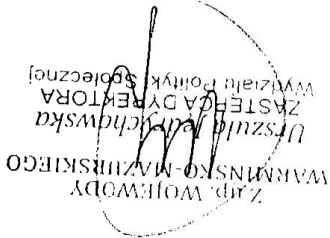 Z up. WOJEWODY
WARMIŃSKO-MAZURSKIEGO
Urszula Jędrychowska
ZASTĘPCA DYREKTORA
Wydziału Polityki Społecznej